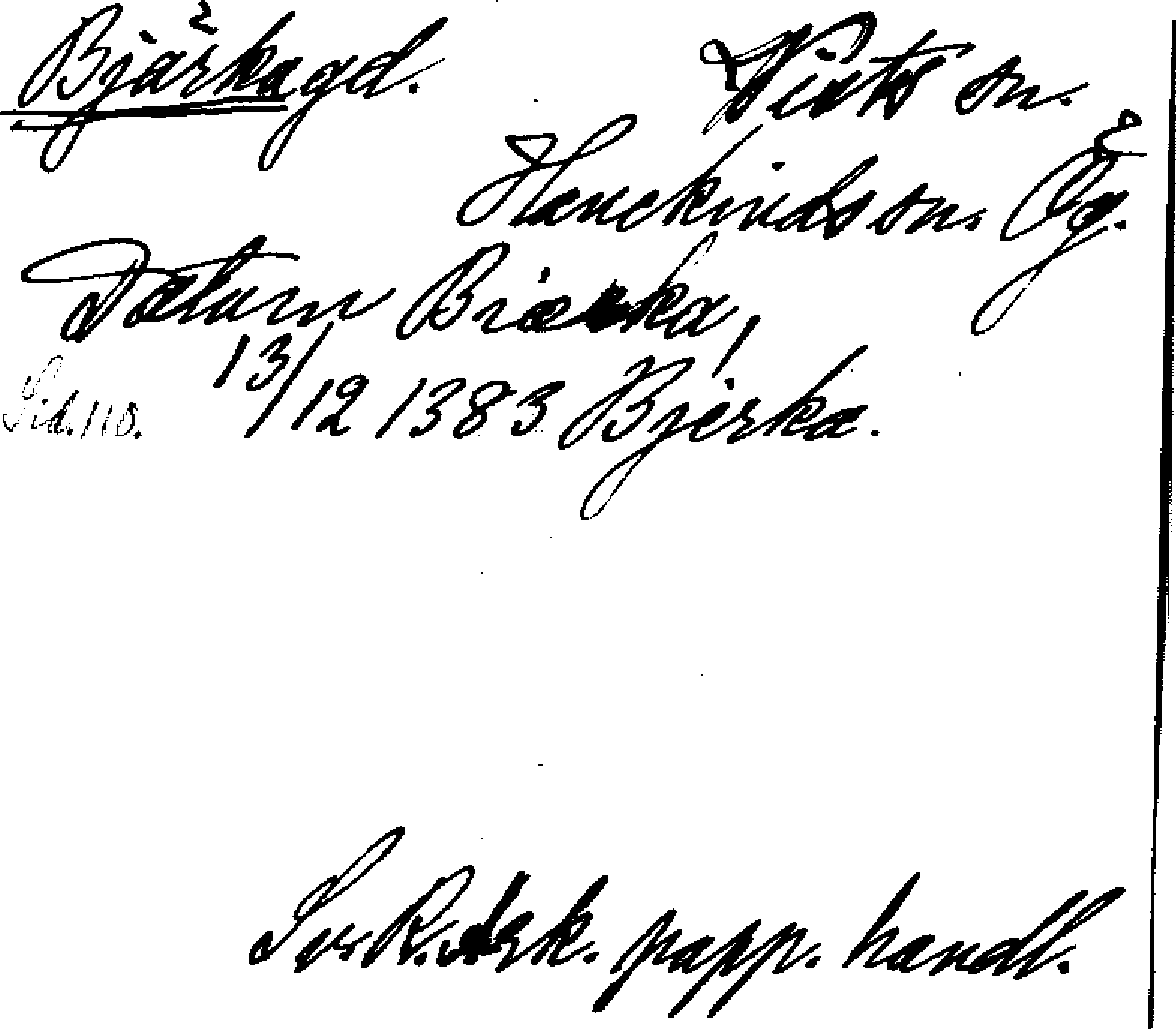 Bjärkagd. Viste sn.
Hanekinds sn. Ög.
Datum Biærka,
13/12 1383 Bjerka.
Sid. 110.
Sv. R. Ark. papp. handl.